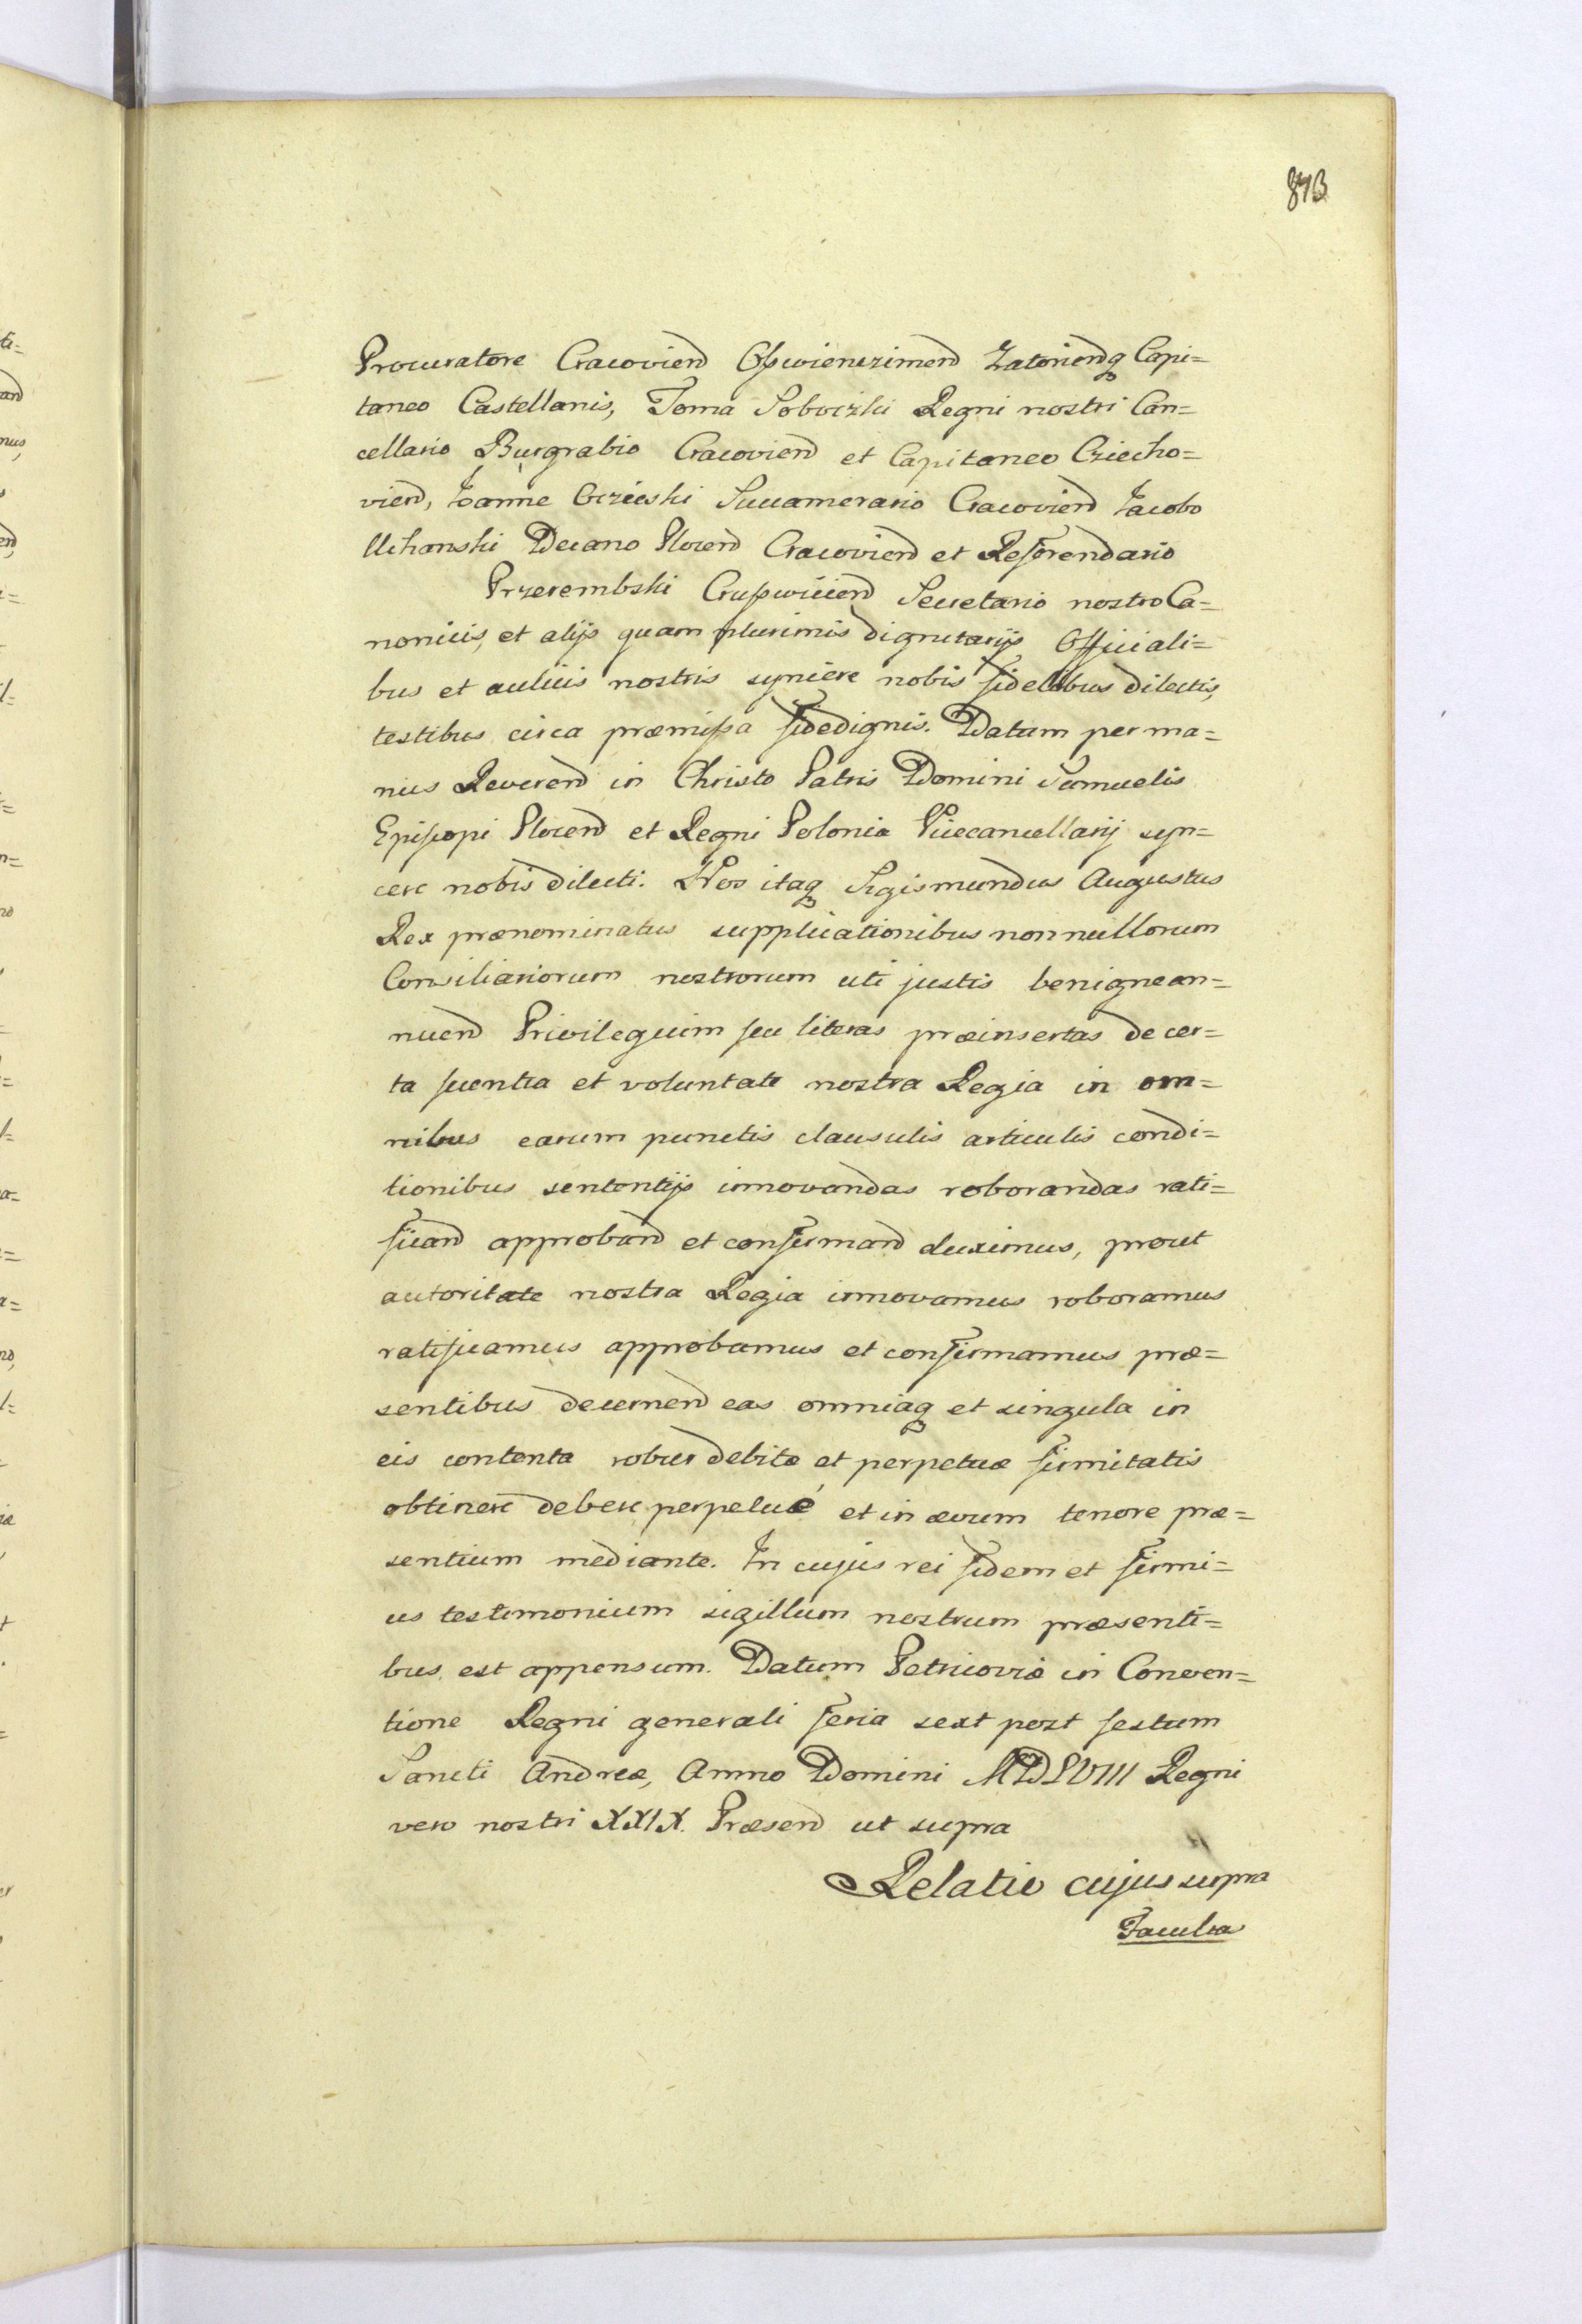 873
Procuratore Cracovien Osswienczimen Zatorienq Capi=
taneo Castellanis, Toma Soboczki Regni nostri Can=
cellario Burgrabio Cracovien et Capitaneo Criecho=
vien, Ioanne Ocziecski Succamerario Cracovien Iacobo
Uchanski Decano Plocen Cracovien et Referendario
Przerembski Crusswicien Secretario nostro Ca=
nonicis, et alijs quam plurimis dignitarijs Officiali=
bus et aulicis nostris syncere nobis fidelibus dilectis,
testibus circa præmissa fidedignis. Datum per ma=
nus Reveren in Christo Patris Domini Samuelis
Episcopi Plocen et Regni Poloniæ Vicecancellarij syn=
cere nobis dilecti. Nos itaq Sigismundus Augustus
Rex prænominatus supplicationibus nonnullorum
Consiliariorum nostrorum uti justis benigne an=
nuen Privilegium seu literas præinsertas de cer=
ta scientia et voluntate nostra Regia in om=
nibus earum punctis clausulis articulis condi=
tionibus sententijs innovandas roborandas rati=
fican approban et confirman duximus, prout
autoritate nostra Regia innovamus roboramus
ratificamus approbamus et confirmamus præ=
sentibus decernen eas omniaq et singula in
eis contenta robur debitæ et perpetuæ firmitatis
obtinere debere perpetué et in ævum tenore præ=
sentium mediante. In cujus rei fidem et firmi=
us testimonium sigillum nostrum præsenti=
bus est appensum. Datum Petricoviæ in Conven=
tione Regni generali feria sext post festum
Sancti Andreæ, Anno Domini MDLVIII Regni
vero nostri XXIX. Præsen ut supra
Relatio cujus supra